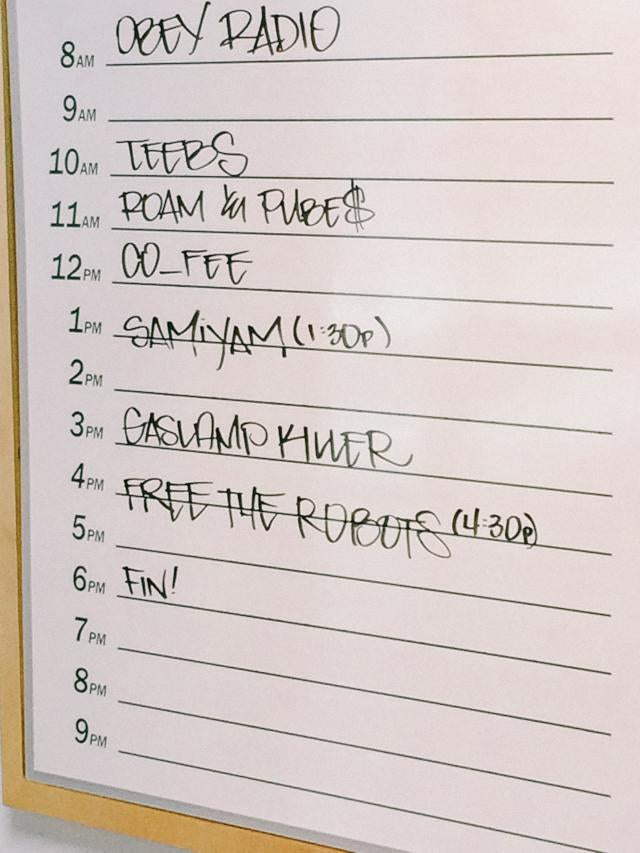 8AM OBEY RADIO
9AM
10AM TEEBS
11AM ROAM PUBE$
12PM CO_FEE
1PM SAMiYAM (1:30p)
2PM
3PM GASLAMP KILLER
4PM FREE THE ROBOTS (4:30p)
5PM
6PM FIN!
7PM
8PM
9PM